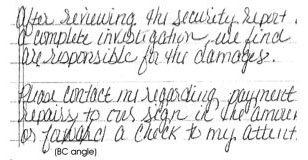 After reviewing the security report
a complete investigation, we find
are responsible for the damages.
Please contact me regarding payment
repairs to our sign in the amoun
or forward a check to my attent.
(BC angle)